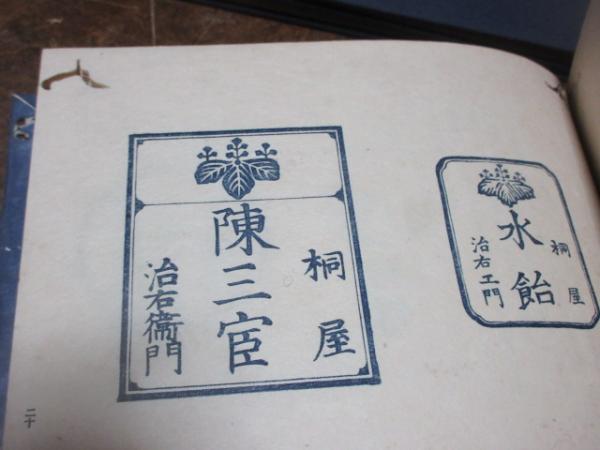 桐屋
水飴
治右エ門
桐屋
陳三宦
治右衛門
二十